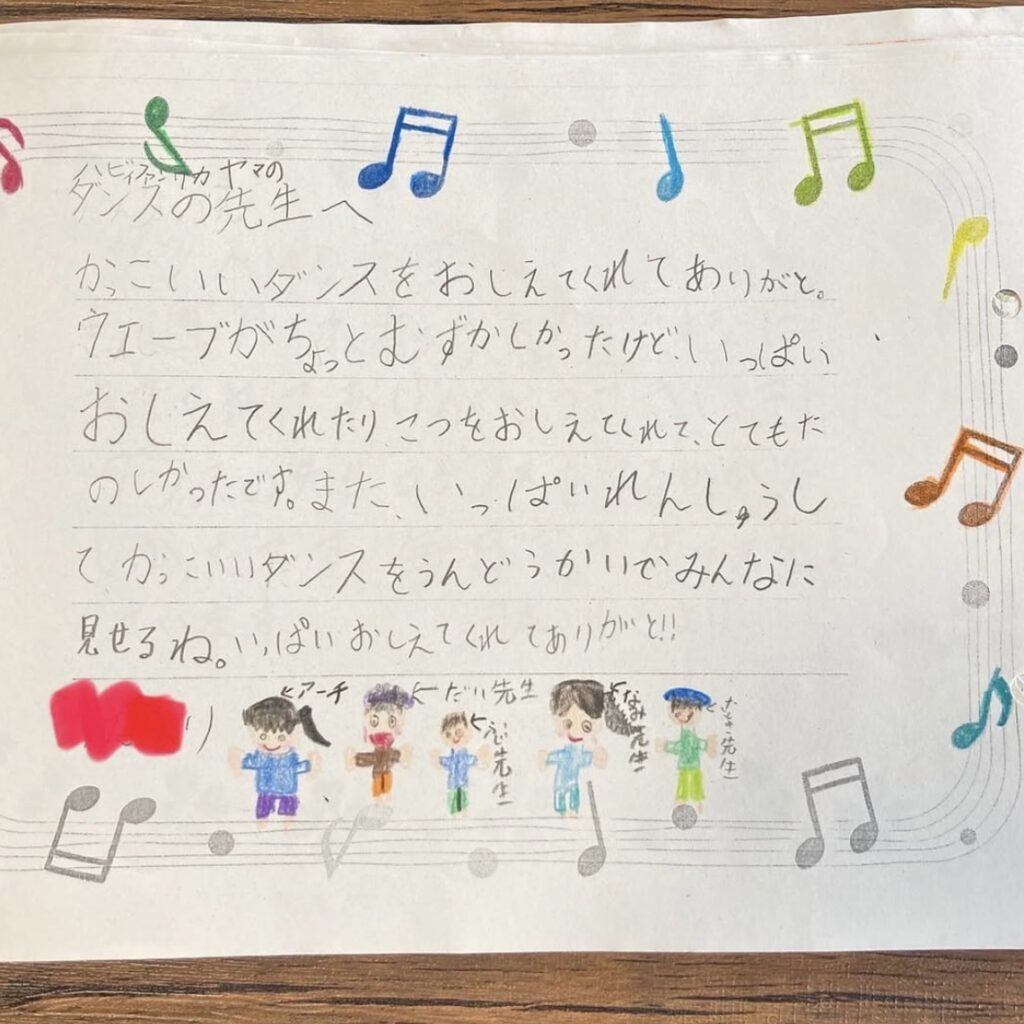 ハビィファンワカヤマの
ダンスの先生へ
かっこいいダンスをおしえてくれてありがと。
ウエーブがちょっとむずかしかったけど、いっぱい
おしえてくれたり、こつをおしえてくれて、とてもた
のしかったです。また、いっぱいれんしゅうし
てかっこいいダンスをうんどうかいでみんなに
見せるね。いっぱいおしえてくれてありがと!!
り
←アーチ
←だい先生
先生
←なみ先生
先生